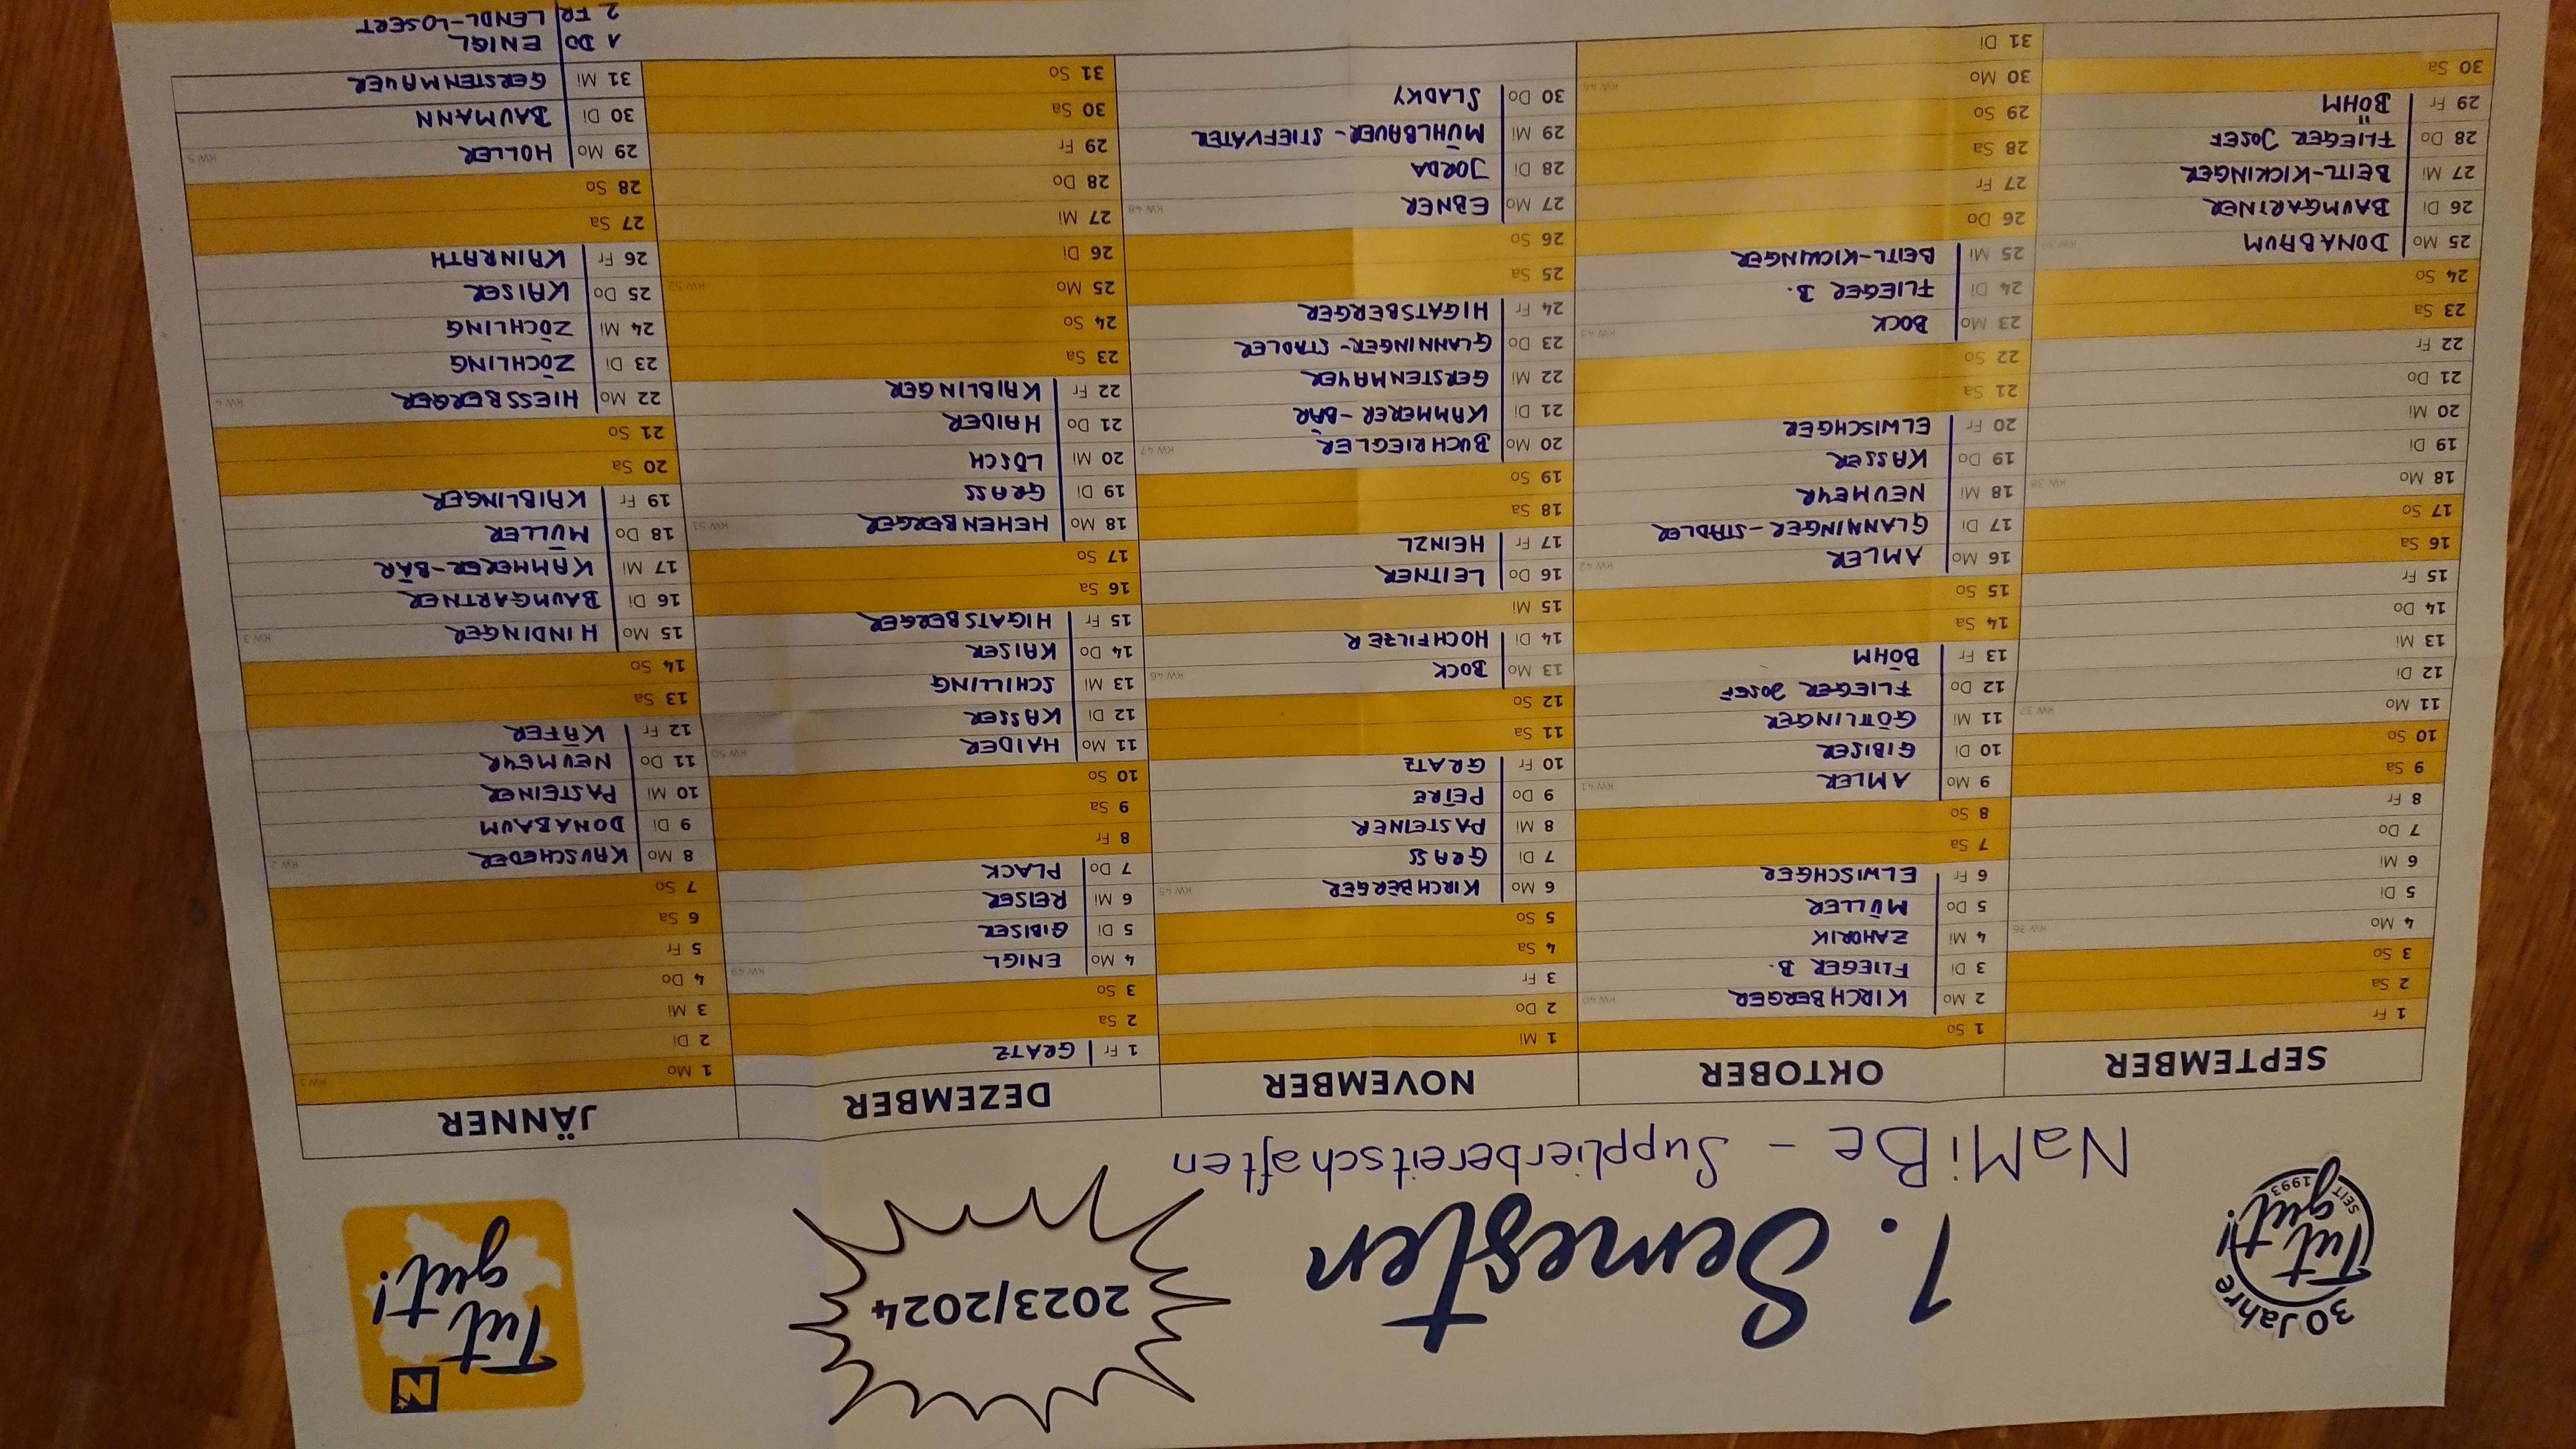 30 Jahre
Tut gut!
SEIT 1993
1. Semester
2023/2024
N
Tut gut!
NaMiBe - Supplierbereitschaften
SEPTEMBER
1 Fr
2 Sa
3 So
4 Mo KW 36
5 Di
6 Mi
7 Do
8 Fr
9 Sa
10 So
11 Mo KW 37
12 Di
13 Mi
14 Do
15 Fr
16 Sa
17 So
18 Mo KW 38
19 Di
20 Mi
21 Do
22 Fr
23 Sa
24 So
25 Mo DONABAUM KW 39
26 Di BAUMGARTNER
27 Mi BEITL-KICKINGER
28 Do FLIEGER JOSEF
29 Fr BÖHM
30 Sa
OKTOBER
1 So
2 Mo KIRCHBERGER KW 40
3 Di FLIEGER B.
4 Mi ZAHORIK
5 Do MÜLLER
6 Fr ELWISCHGER
7 Sa
8 So
9 Mo AMLER KW 41
10 Di GIBISER
11 Mi GÖTTLINGER
12 Do FLIEGER JOSEF
13 Fr BÖHM
14 Sa
15 So
16 Mo AMLER KW 42
17 Di GLANNINGER-STADLER
18 Mi NEUMEYR
19 Do KASSER
20 Fr ELWISCHGER
21 Sa
22 So
23 Mo BOCK KW 43
24 Di FLIEGER B.
25 Mi BEITL-KICKINGER
26 Do
27 Fr
28 Sa
29 So
30 Mo KW 44
31 Di
NOVEMBER
1 Mi
2 Do
3 Fr
4 Sa
5 So
6 Mo KIRCHBERGER KW 45
7 Di GRASS
8 Mi PASTEINER
9 Do PETRE
10 Fr GRATZ
11 Sa
12 So
13 Mo BOCK KW 46
14 Di HOCHFILZER
15 Mi
16 Do LEITNER
17 Fr HEINZL
18 Sa
19 So
20 Mo BUCHRIEGLER KW 47
21 Di KAMMERER-BÄR
22 Mi GERSTENMAYER
23 Do GLANNINGER-STADLER
24 Fr HIGATSBERGER
25 Sa
26 So
27 Mo EBNER KW 48
28 Di JORDA
29 Mi MÜHLBAUER-STIEFVATER
30 Do SLADKY
DEZEMBER
1 Fr GRATZ
2 Sa
3 So
4 Mo ENIGL KW 49
5 Di GIBISER
6 Mi REISER
7 Do PLACK
8 Fr
9 Sa
10 So
11 Mo HAIDER KW 50
12 Di KASSER
13 Mi SCHILLING
14 Do KAISER
15 Fr HIGATSBERGER
16 Sa
17 So
18 Mo HEHENBERGER KW 51
19 Di GRASS
20 Mi LÖSCH
21 Do HAIDER
22 Fr KAIBLINGER
23 Sa
24 So
25 Mo KW 52
26 Di
27 Mi
28 Do
29 Fr
30 Sa
31 So
JÄNNER
1 Mo KW 1
2 Di
3 Mi
4 Do
5 Fr
6 Sa
7 So
8 Mo KAUSCHEDER KW 2
9 Di DONABAUM
10 Mi PASTEINER
11 Do NEUMEYR
12 Fr KÄFER
13 Sa
14 So
15 Mo HINDINGER KW 3
16 Di BAUMGARTNER
17 Mi KAMMERER-BÄR
18 Do MÜLLER
19 Fr KAIBLINGER
20 Sa
21 So
22 Mo HIESSBERGER KW 4
23 Di ZÖCHLING
24 Mi ZÖCHLING
25 Do KAISER
26 Fr KAINRATH
27 Sa
28 So
29 Mo HOLLER KW 5
30 Di BAUMANN
31 Mi GERSTENMAYER
1 DO ENIGL
2 FR LENDL-LOSERT